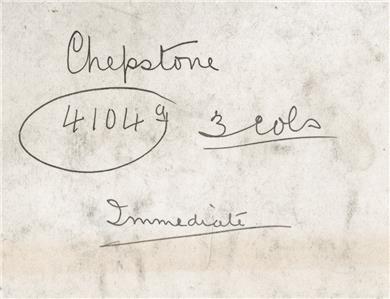 Chepstone
4104a 3 cols
Immediate